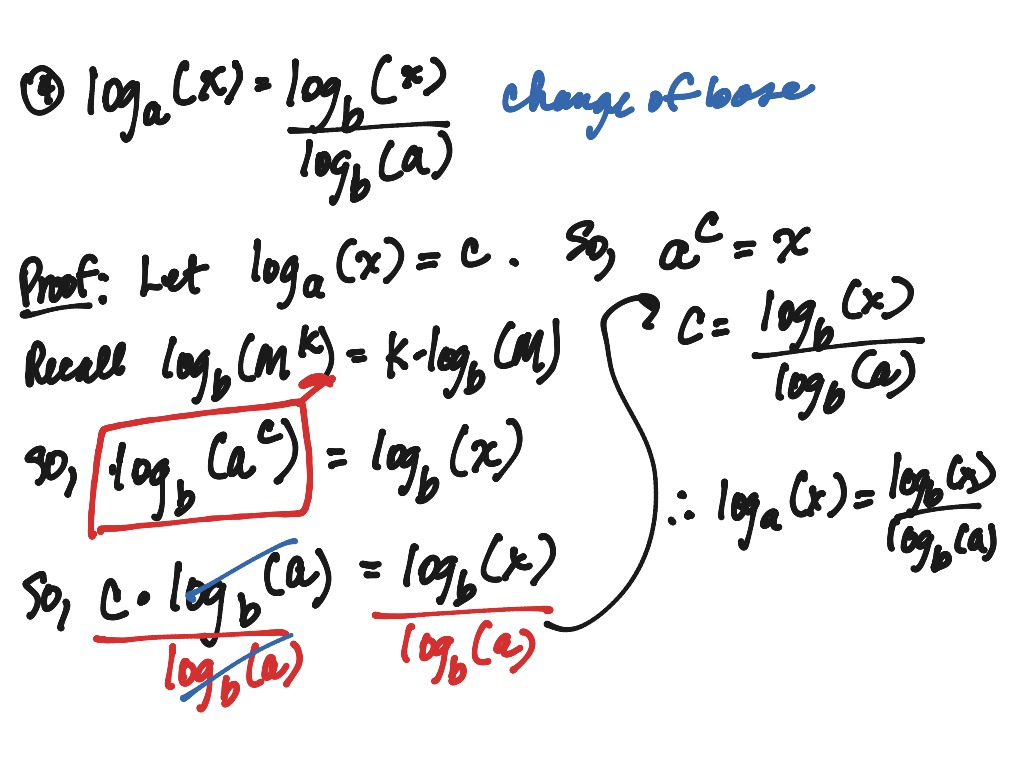 ④ logₐ(x) = log_b(x) / log_b(a) change of base
Proof: Let logₐ(x) = c. So, a^c = x
Recall log_b(M^K) = K·log_b(M)
c = log_b(x) / log_b(a)
so, log_b(a^c) = log_b(x)
So, c · log_b(a) / log_b(a) = log_b(x) / log_b(a)
∴ logₐ(x) = log_b(x) / log_b(a)